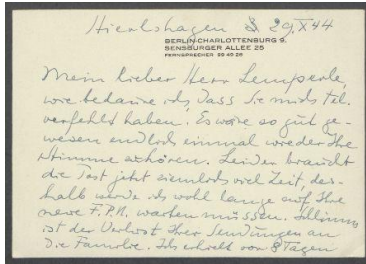 Hierlshagen 29.X.44
BERLIN-CHARLOTTENBURG 9,
SENSBURGER ALLEE 25
FERNSPRECHER 99 49 26
Mein lieber Herr Lemperle,
wie bedaure ich, dass Sie mich tel.
verfehlt haben. Es wäre so gut ge-
wesen endlich einmal wieder Ihre
Stimme zu hören. Leider braucht
die Post jetzt ziemlich viel Zeit, des-
halb werde ich wohl lange auf Ihre
neue F.P.N. warten müssen. Schlimm
ist der Verlust Ihrer Sendungen an
die Familie. Ich erhielt vor 8 Tagen